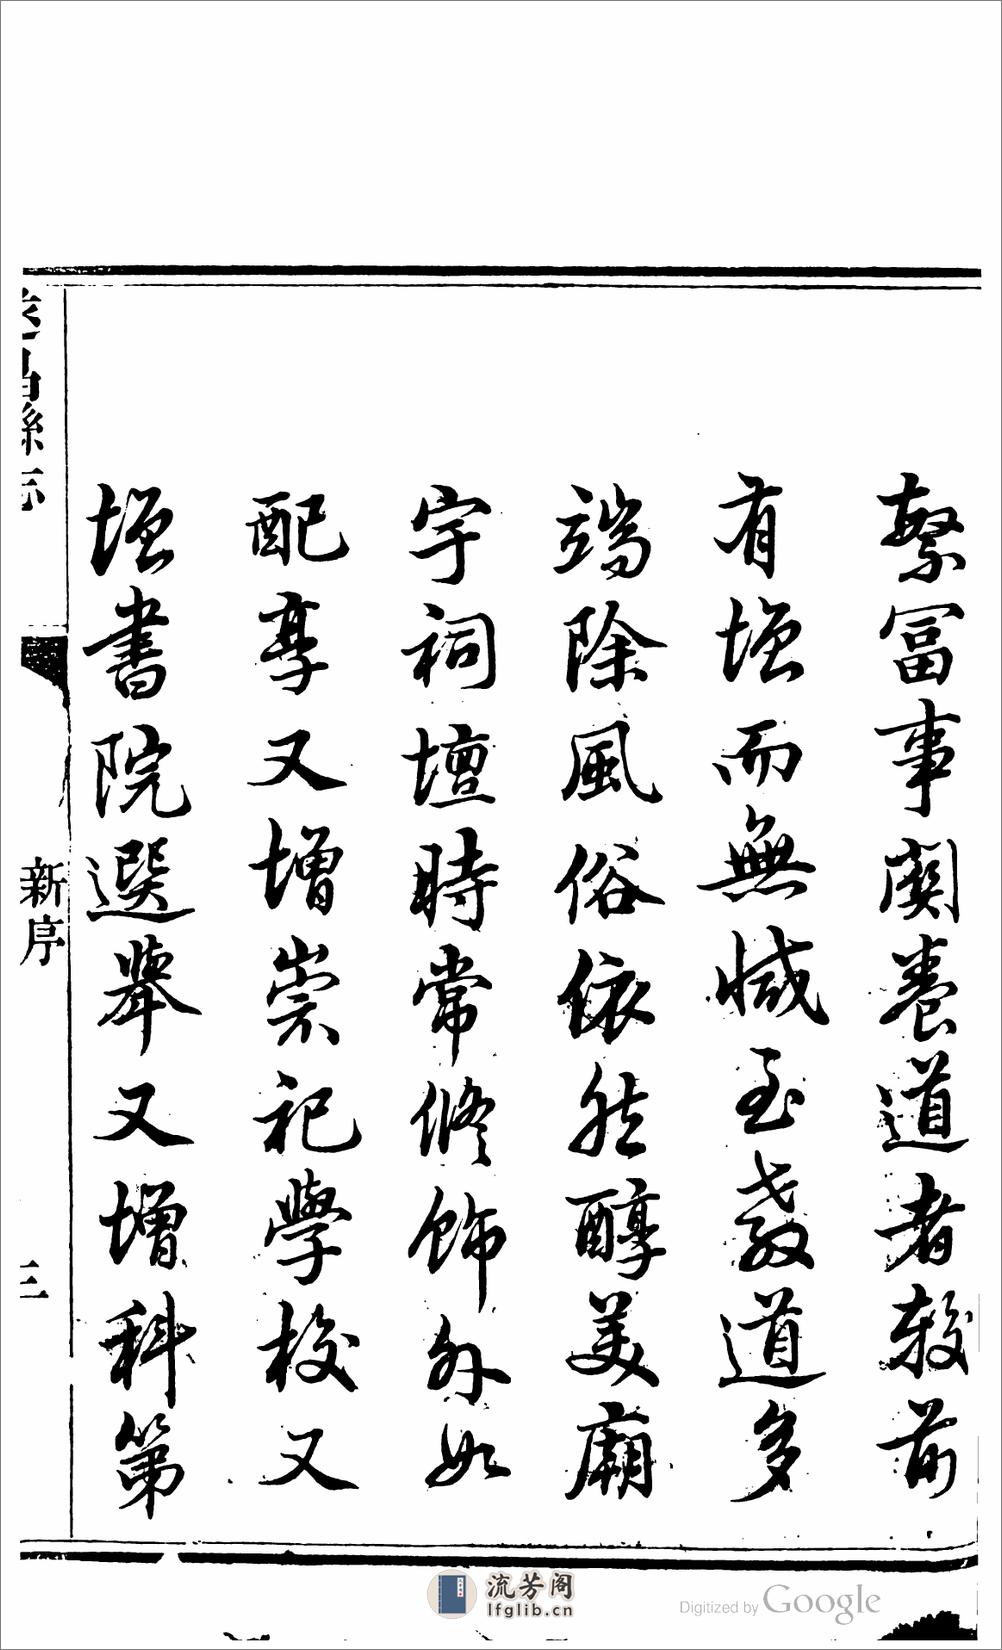 繁冨事關養道者較前
有增而無減至教道多
端除風俗依然醇美廟
宇祠壇時常修飾外如
配享又增崇祀學校又
增書院選舉又增科第
遂昌縣志
新序
三
流芳阁
lfglib.cn
Digitized by Google